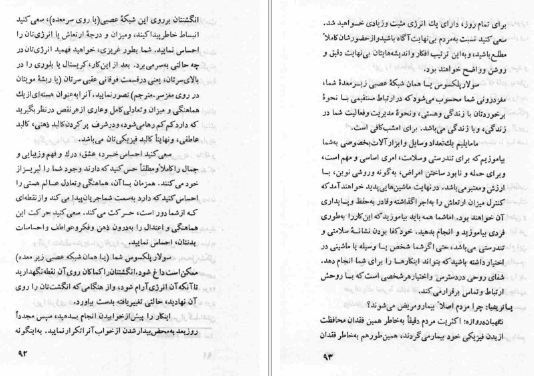 انگشتان برروی این شبکهٔ عصبی(یا روی سرمعده)، سعی کنید
انبساط خاطر پیدا کنید، ومیزان و درجهٔ ارتعاش یا انرژی‌تان را
احساس نمایید. شما بطور غریزی، خواهید فهمید انرژی‌تان در
چه حالتی به‌سر می‌برد. بعد از این کار، کریستال یا بلوری را در
بالای سرتان، یعنی درقسمت فوقانی عقبی سرتان (یا ربشهٔ مویتان
در روی مغزسر.مترجم) تصور نمایید، آنرا به‌عنوان هسته‌ای از یک
هماهنگی و میزان و تعادلی کامل وعاری از هرنقص در نظر بگیرید
که دارد کم‌کم رها می‌شود، ودرشرف پر کردن کالبد ذهنی، کالبد
عاطفی، و نهایتاً کالبد فیزیکی‌تان می‌باشد.
سعی کنید احساس خرد، عشق، درک و فهم وزیبایی و
جمال را کاملاً و مطلقاً حس کنید که دارند وجود شما را لبریز از
خود می‌کنند. همزمان با آن، هماهنگی وتعادل عالم هستی را
احساس کنید که دارد به‌سمت شما جریان پیدا می‌کند واز نقطه‌ای
که ازشما دور است، حرکت می‌کند. سعی کنید حرکت این
هماهنگی و اعتدال را به‌درون ذهن و فکر و عواطف و احساسات
بدنتان، احساس نمایید.
سولار پلکسوس شما (یا همان شبکه عصبی زیر معده)
ممکن است داغ شود، انگشتان را کماکان روی آن نقطه نگهدارید
تا آنکه آن انرژی آرام شود، واز هنگامی که انگشت‌تان را روی
آن نهادید، حالتی تغییریافته بدست بیاورد.
اینکار را پیش از خوابیدن انجام بدهید، سپس مجدداً
روز بعد به‌محض بیدار شدن از خواب آنرا تکرار نمایید. به‌اینگونه
۹۲
برای تمام روز، دارای یک انرژی مثبت وزیادی خواهید شد.
سعی کنید نسبت به‌مردم بی‌نهایت آگاه باشید و از حضورشان کاملاً
مطلع باشید، و به این ترتیب افکار و اندیشه‌هایتان بی‌نهایت دقیق و
روشن و واضح خواهند بود.
سولار پلکسوس یا همان شبکه عصبی زیر معدهٔ شما،
مقر درونی شما محسوب می‌شود که در ارتباط مستقیمی با نحوهٔ
برخوردتان با زندگی وهستی، ونحوهٔ مدیریت وفعالیت شما در
زندگی، و با زندگی می‌باشد. برای امشب کافی است.
ما مایلیم یک تعداد وسایل و ابزار آلات بخصوصی به‌شما
بیاموزیم که برای تندرستی و سلامت، امری اساسی و مهم است،
وبرای حمله و نابود ساختن امراض، به‌گونه ورزشی نوین، با
ارزش ومعتبر می‌باشد. در نهایت ماشین‌هایی پدید خواهند آمد که
کنترل میزان ارتعاش را به‌اجرا گذاشته وقادر به‌حفظ و پایداری
آن خواهند بود. اما شما همه باید بیاموزید که این کار را به‌طوری
فردی بیاموزید و انجام بدهید. خود کفا بودن نشانهٔ سلامتی و
تندرستی می‌باشد، حتی اگر شما شخص یا وسیله یا ماشینی در
اختیار داشته باشید که بتواند اینکارها را برای شما انجام دهد.
شفای روحی در دسترس و اختیار هر شخصی است که با روحش
ارتباط وتماس برقرار می‌کند.
پاتریشیا: چرا مردم اصلاً بیمار و مریض می‌شوند؟
نگهبان دروازه: اکثریت مردم دقیقاً به‌خاطر همین فقدان محافظت
از بدن فیزیکی خود بیمار می‌گردند، همین‌طور هم به‌خاطر فقدان
۹۳